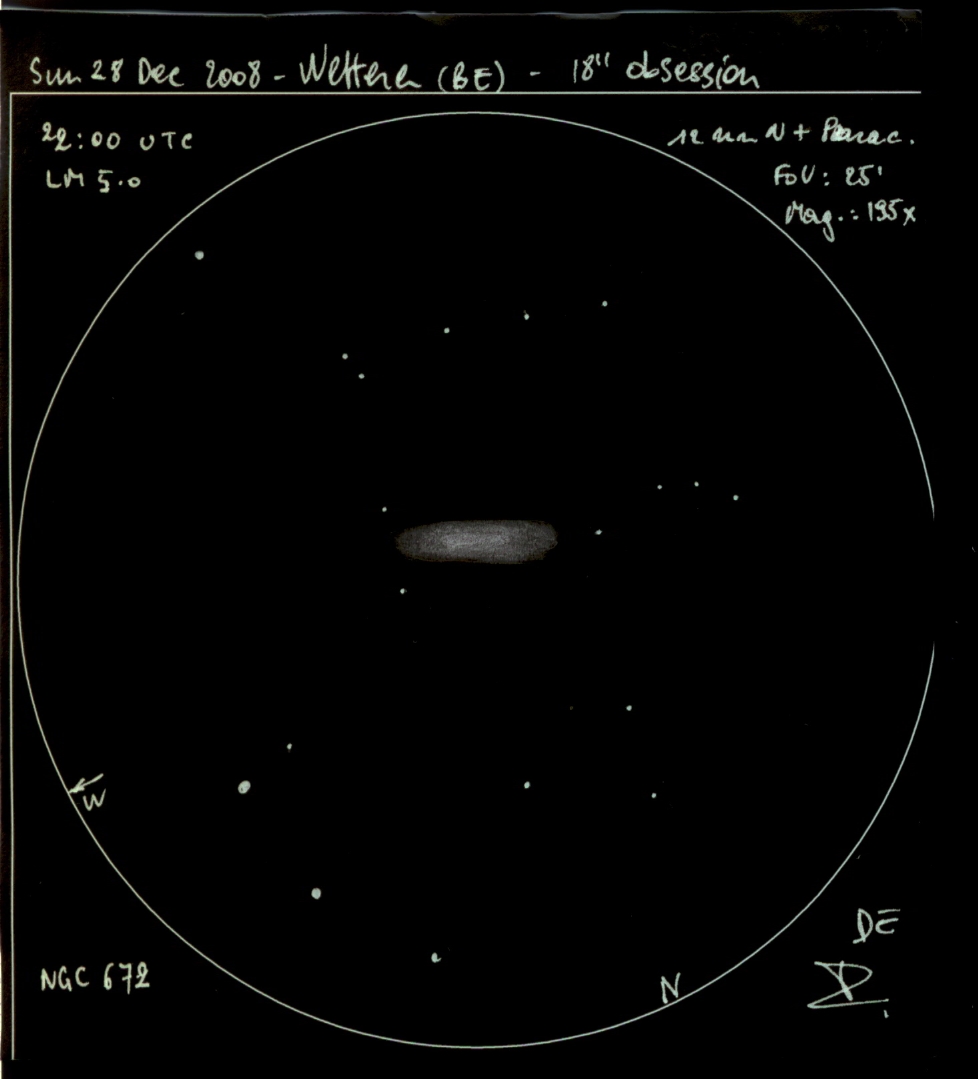 Sun 28 Dec 2008 - Wetteren (BE) - 18" obsession
22:00 UTC
LM 5.0
12 mm N + Parac.
FoV: 25'
Mag.: 195x
W
N
NGC 672
DE